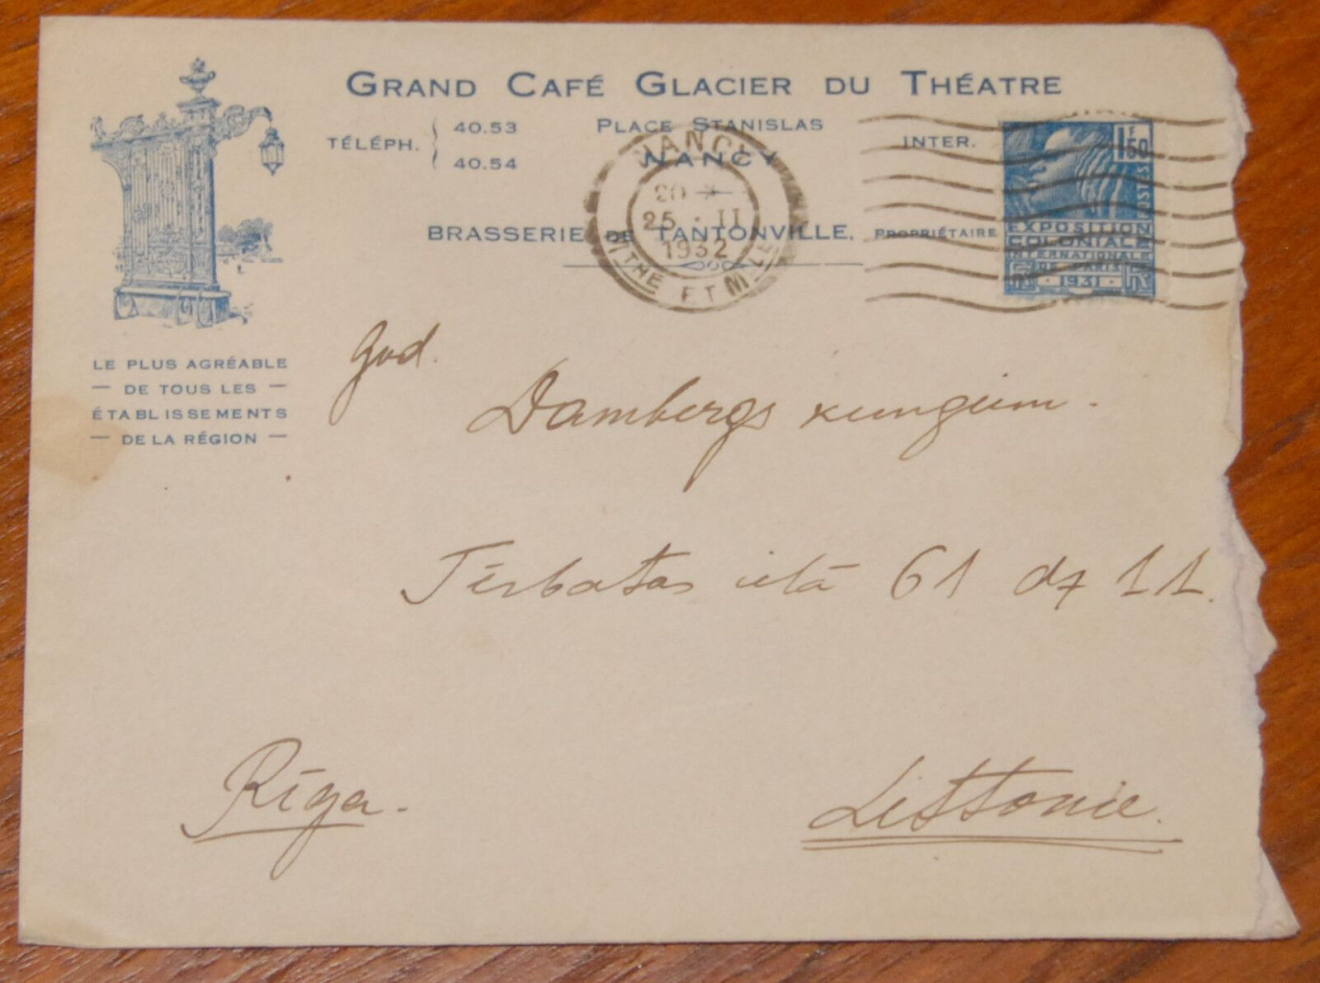 GRAND CAFÉ GLACIER DU THÉATRE
TÉLÉPH. { 40.53
40.54
PLACE STANISLAS
NANCY
INTER.
BRASSERIE DE TANTONVILLE, PROPRIÉTAIRE
NANCY
20 *
25 · II
1932
MTHE ET MLLE
1F50
POSTES
EXPOSITION
COLONIALE
INTERNATIONALE
DE PARIS
· 1931 ·
LE PLUS AGRÉABLE
— DE TOUS LES —
ÉTABLISSEMENTS
— DE LA RÉGION —
God.
Dambergs kungam.
Tērbatas ielā 61 dz 11.
Rīga.
Lettonie.